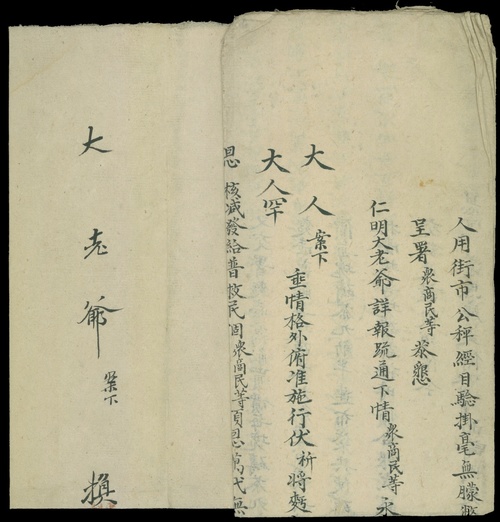 人用街市公秤經目驗掛毫無朦
呈署衆商民等恭懇
仁明大老爺詳報疏通下情衆商民等永
大人案下垂情格外俯准施行伏祈將
大人罕
恩核減發給普枚民固衆商民等頂恩萬代無
大老爺案下換